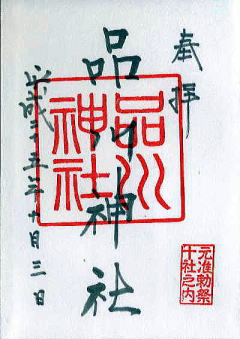 奉拝
品川神社
品川神社
平成二五年十月三日
元准勅祭
十社之内